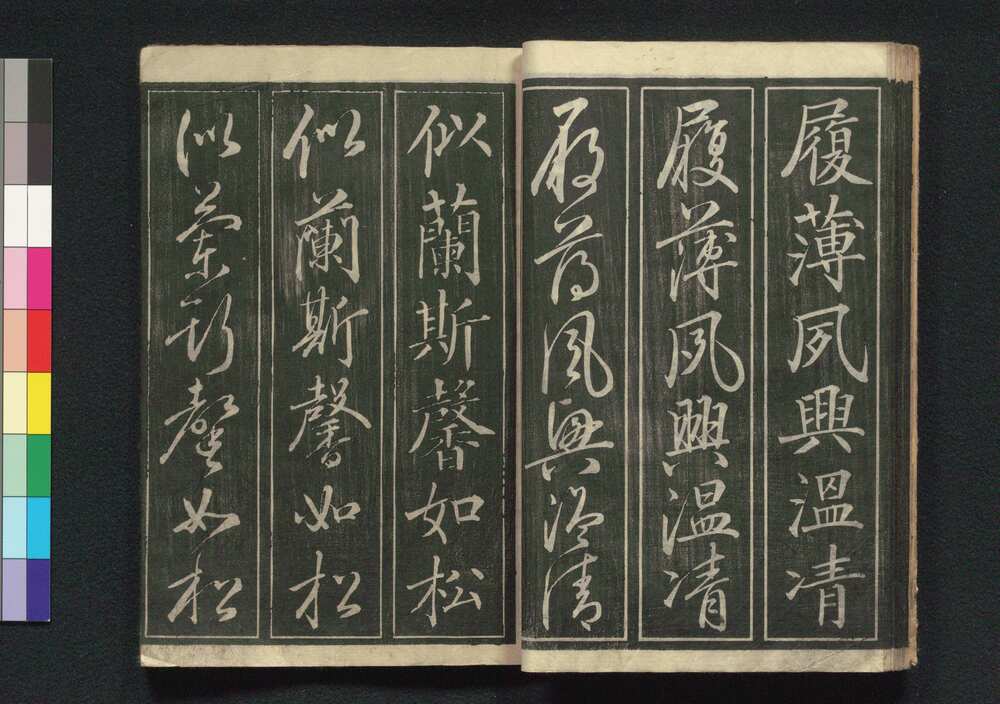 履薄夙興溫凊
履薄夙興温凊
履薄夙興温清
似蘭斯馨如松
似蘭斯馨如松
似蘭斯馨如松